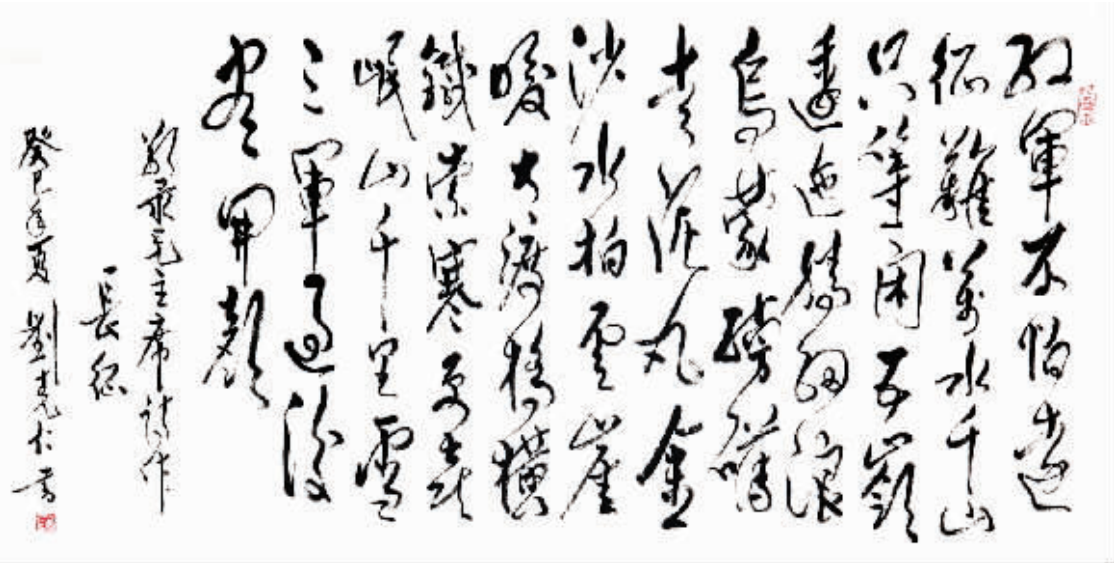 紅軍不怕遠
征難萬水千山
只等閑五嶺
逶迤騰細浪
烏蒙磅礴
走泥丸金
沙水拍雲崖
暖大渡橋橫
鐵索寒更喜
岷山千里雪
三軍過後
盡開顏
敬录毛主席詩作
長征
癸巳年夏 劉克仁書